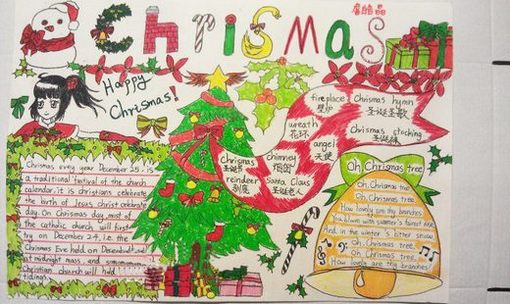 Chrismas
Happy
Chrismas!
fireplace
壁炉
Chrismas hymn
圣诞圣歌
wreath
花环
angel
天使
Chrismas stocking
圣诞袜
Chrismas
圣诞节
chimney
烟囱
reindeer
驯鹿
Santa Claus
圣诞老人
Oh, Chrismas tree
Oh, Chrismas tree
Oh, Chrismas tree,
How lovely are thy branches
You bloom with summer's faintest rose
And in the winter's bitter snow
Oh, Chrismas tree,
Oh, Chrismas tree,
How lovely are thy branches!
Chrismas every year December 25, is
a traditional festival of the church
calendar. it is christians celebrate
the birth of Jesus christ celebrate
day. On Chrismas day, most of
the catholic church will first
on December 24, i.e. the
Chrismas Eve held on December
at midnight mass, and some
Christian church will hold